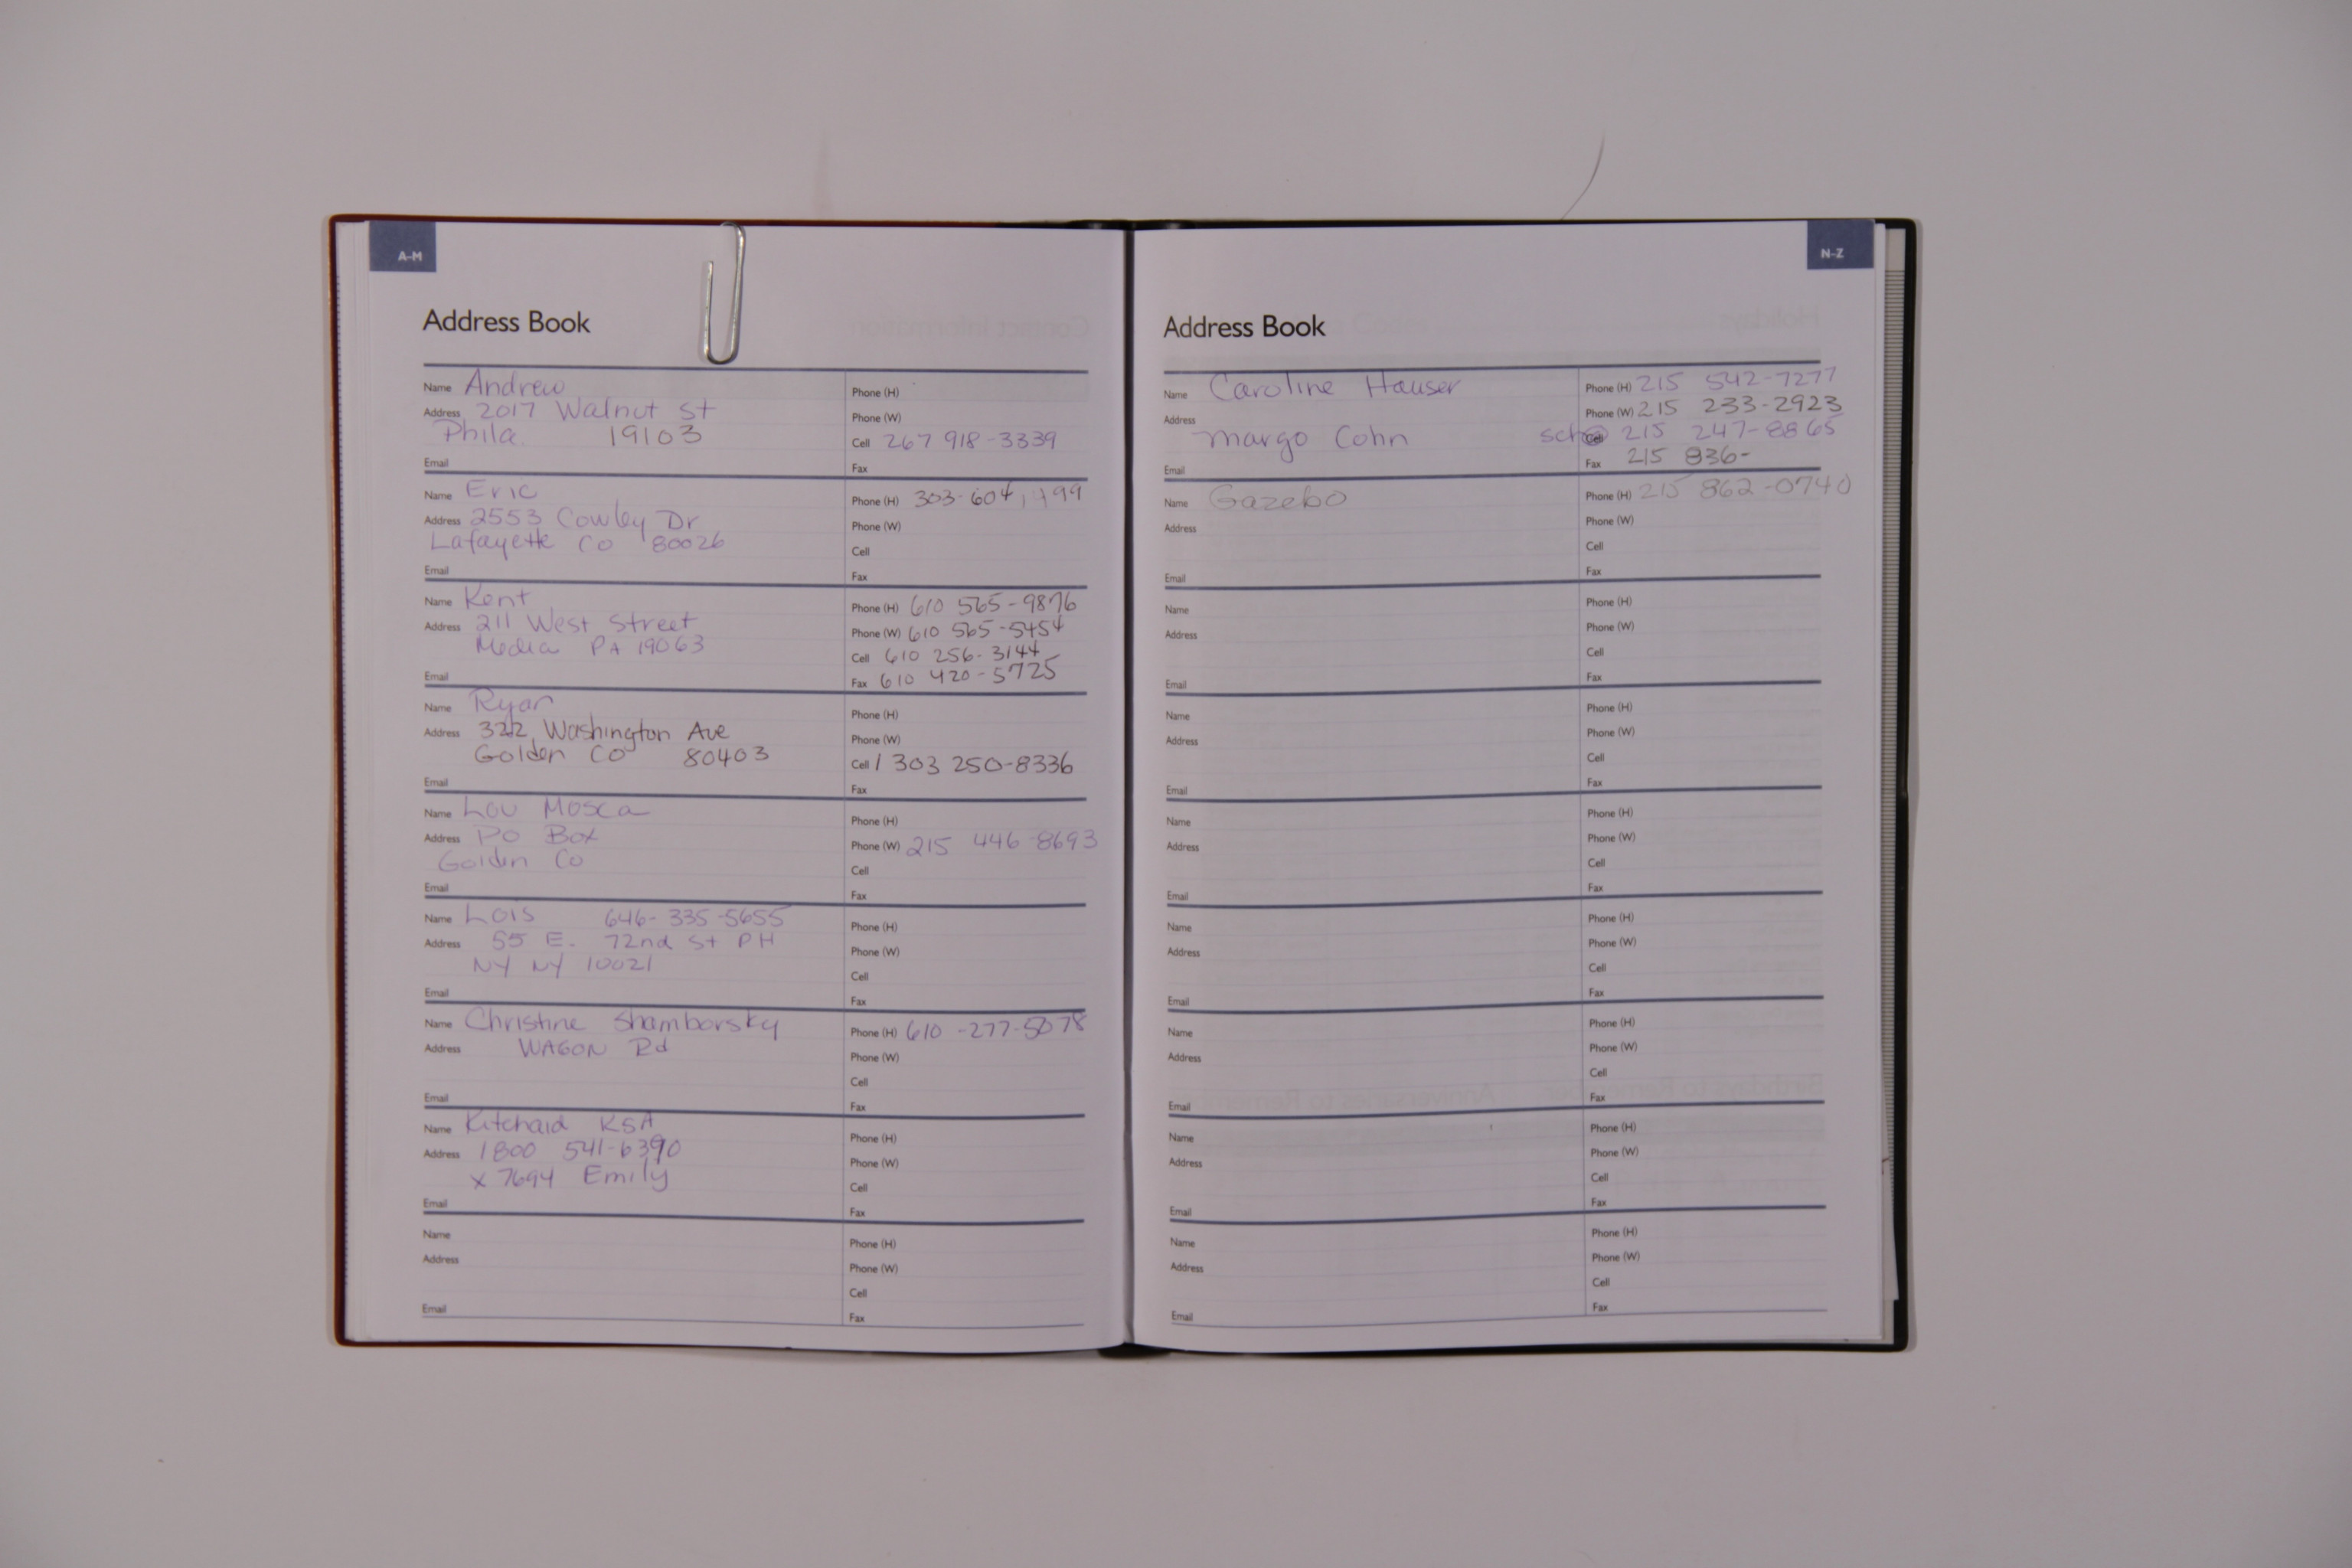 A-M
Address Book
Name Andrew
Address 2017 Walnut St
Phila. 19103
Email
Phone (H)
Phone (W)
Cell 267 918-3339
Fax
Name Eric
Address 2553 Cowley Dr
Lafayette CO 80026
Email
Phone (H) 303-604,
Phone (W)
Cell
Fax
Name Kent
Address 211 West Street
Media PA 19063
Email
Phone (H) 610 565-9876
Phone (W) 610 565-5454
Cell 610 256-3144
Fax 610 420-5725
Name Ryan
Address 322 Washington Ave
Golden CO 80403
Email
Phone (H)
Phone (W)
Cell 1 303 250-8336
Fax
Name Lou Mosca
Address PO Box
Golden Co
Email
Phone (H)
Phone (W) 215 446-8693
Cell
Fax
Name Lois 646-335-5655
Address 55 E. 72nd St PH
NY NY 10021
Email
Phone (H)
Phone (W)
Cell
Fax
Name Christine Shamborsky
Address WAGON Rd
Email
Phone (H) 610-277-5078
Phone (W)
Cell
Fax
Name Kitchaid KSA
Address 1800 541-6390
x 7694 Emily
Email
Phone (H)
Phone (W)
Cell
Fax
Name
Address
Email
Phone (H)
Phone (W)
Cell
Fax
N-Z
Address Book
Name Caroline Hauser
Address
Margo Cohn
Email
Phone (H) 215 542-7277
Phone (W) 215 233-2923
Cell 215 247-8865
Fax 215 836-
Name Gazebo
Address
Email
Phone (H) 215 862-0740
Phone (W)
Cell
Fax
Name
Address
Email
Phone (H)
Phone (W)
Cell
Fax
Name
Address
Email
Phone (H)
Phone (W)
Cell
Fax
Name
Address
Email
Phone (H)
Phone (W)
Cell
Fax
Name
Address
Email
Phone (H)
Phone (W)
Cell
Fax
Name
Address
Email
Phone (H)
Phone (W)
Cell
Fax
Name
Address
Email
Phone (H)
Phone (W)
Cell
Fax
Name
Address
Email
Phone (H)
Phone (W)
Cell
Fax